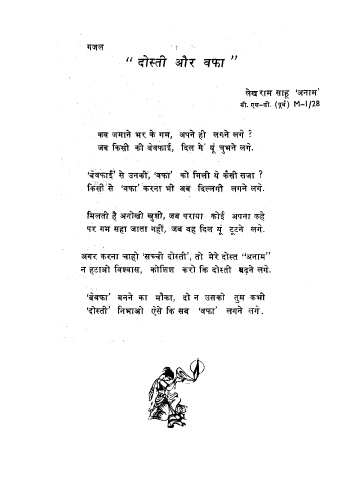 गजल
“ दोस्ती और वफा ”
लेखराम साहू ‘अनाम’
बी. एस-सी. (पूर्व) M-1/28
कब जमाने भर के गम, अपने ही लगने लगे ?
जब किसी की बेवफाई, दिल में यूं चुभने लगे.
‘बेवफाई’ से उनकी, ‘वफा’ को मिली ये कैसी सजा ?
किसी से ‘वफा’ करना भी अब दिल्लगी लगने लगे.
मिलती है अनोखी खुशी, जब पराया कोई अपना कहे
पर गम सहा जाता नहीं, जब वह दिल यूं टूटने लगे.
अगर करना चाहो ‘सच्ची दोस्ती’, तो मेरे दोस्त “अनाम”
न हटाओ विश्वास, कोशिश करो कि दोस्ती बढ़ने लगे.
‘बेवफा’ बनने का मौका, दो न उसको तुम कभी
‘दोस्ती’ निभाओ ऐसे कि सब ‘वफा’ लगने लगे.